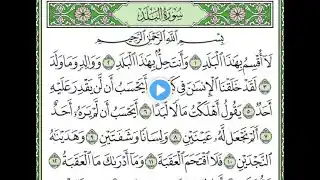 سُورَةُ الْبَلَدِ
بِسْمِ اللَّهِ الرَّحْمَٰنِ الرَّحِيمِ
لَا أُقْسِمُ بِهَٰذَا الْبَلَدِ ۝١ وَأَنتَ حِلٌّ بِهَٰذَا الْبَلَدِ ۝٢ وَوَالِدٍ وَمَا وَلَدَ
۝٣ لَقَدْ خَلَقْنَا الْإِنسَٰنَ فِي كَبَدٍ ۝٤ أَيَحْسَبُ أَن لَّن يَقْدِرَ عَلَيْهِ
أَحَدٌ ۝٥ يَقُولُ أَهْلَكْتُ مَالًا لُّبَدًا ۝٦ أَيَحْسَبُ أَن لَّمْ يَرَهُ أَحَدٌ
۝٧ أَلَمْ نَجْعَل لَّهُ عَيْنَيْنِ ۝٨ وَلِسَانًا وَشَفَتَيْنِ ۝٩ وَهَدَيْنَٰهُ
النَّجْدَيْنِ ۝١٠ فَلَا اقْتَحَمَ الْعَقَبَةَ ۝١١ وَمَا أَدْرَىٰكَ مَا الْعَقَبَةُ ۝١٢